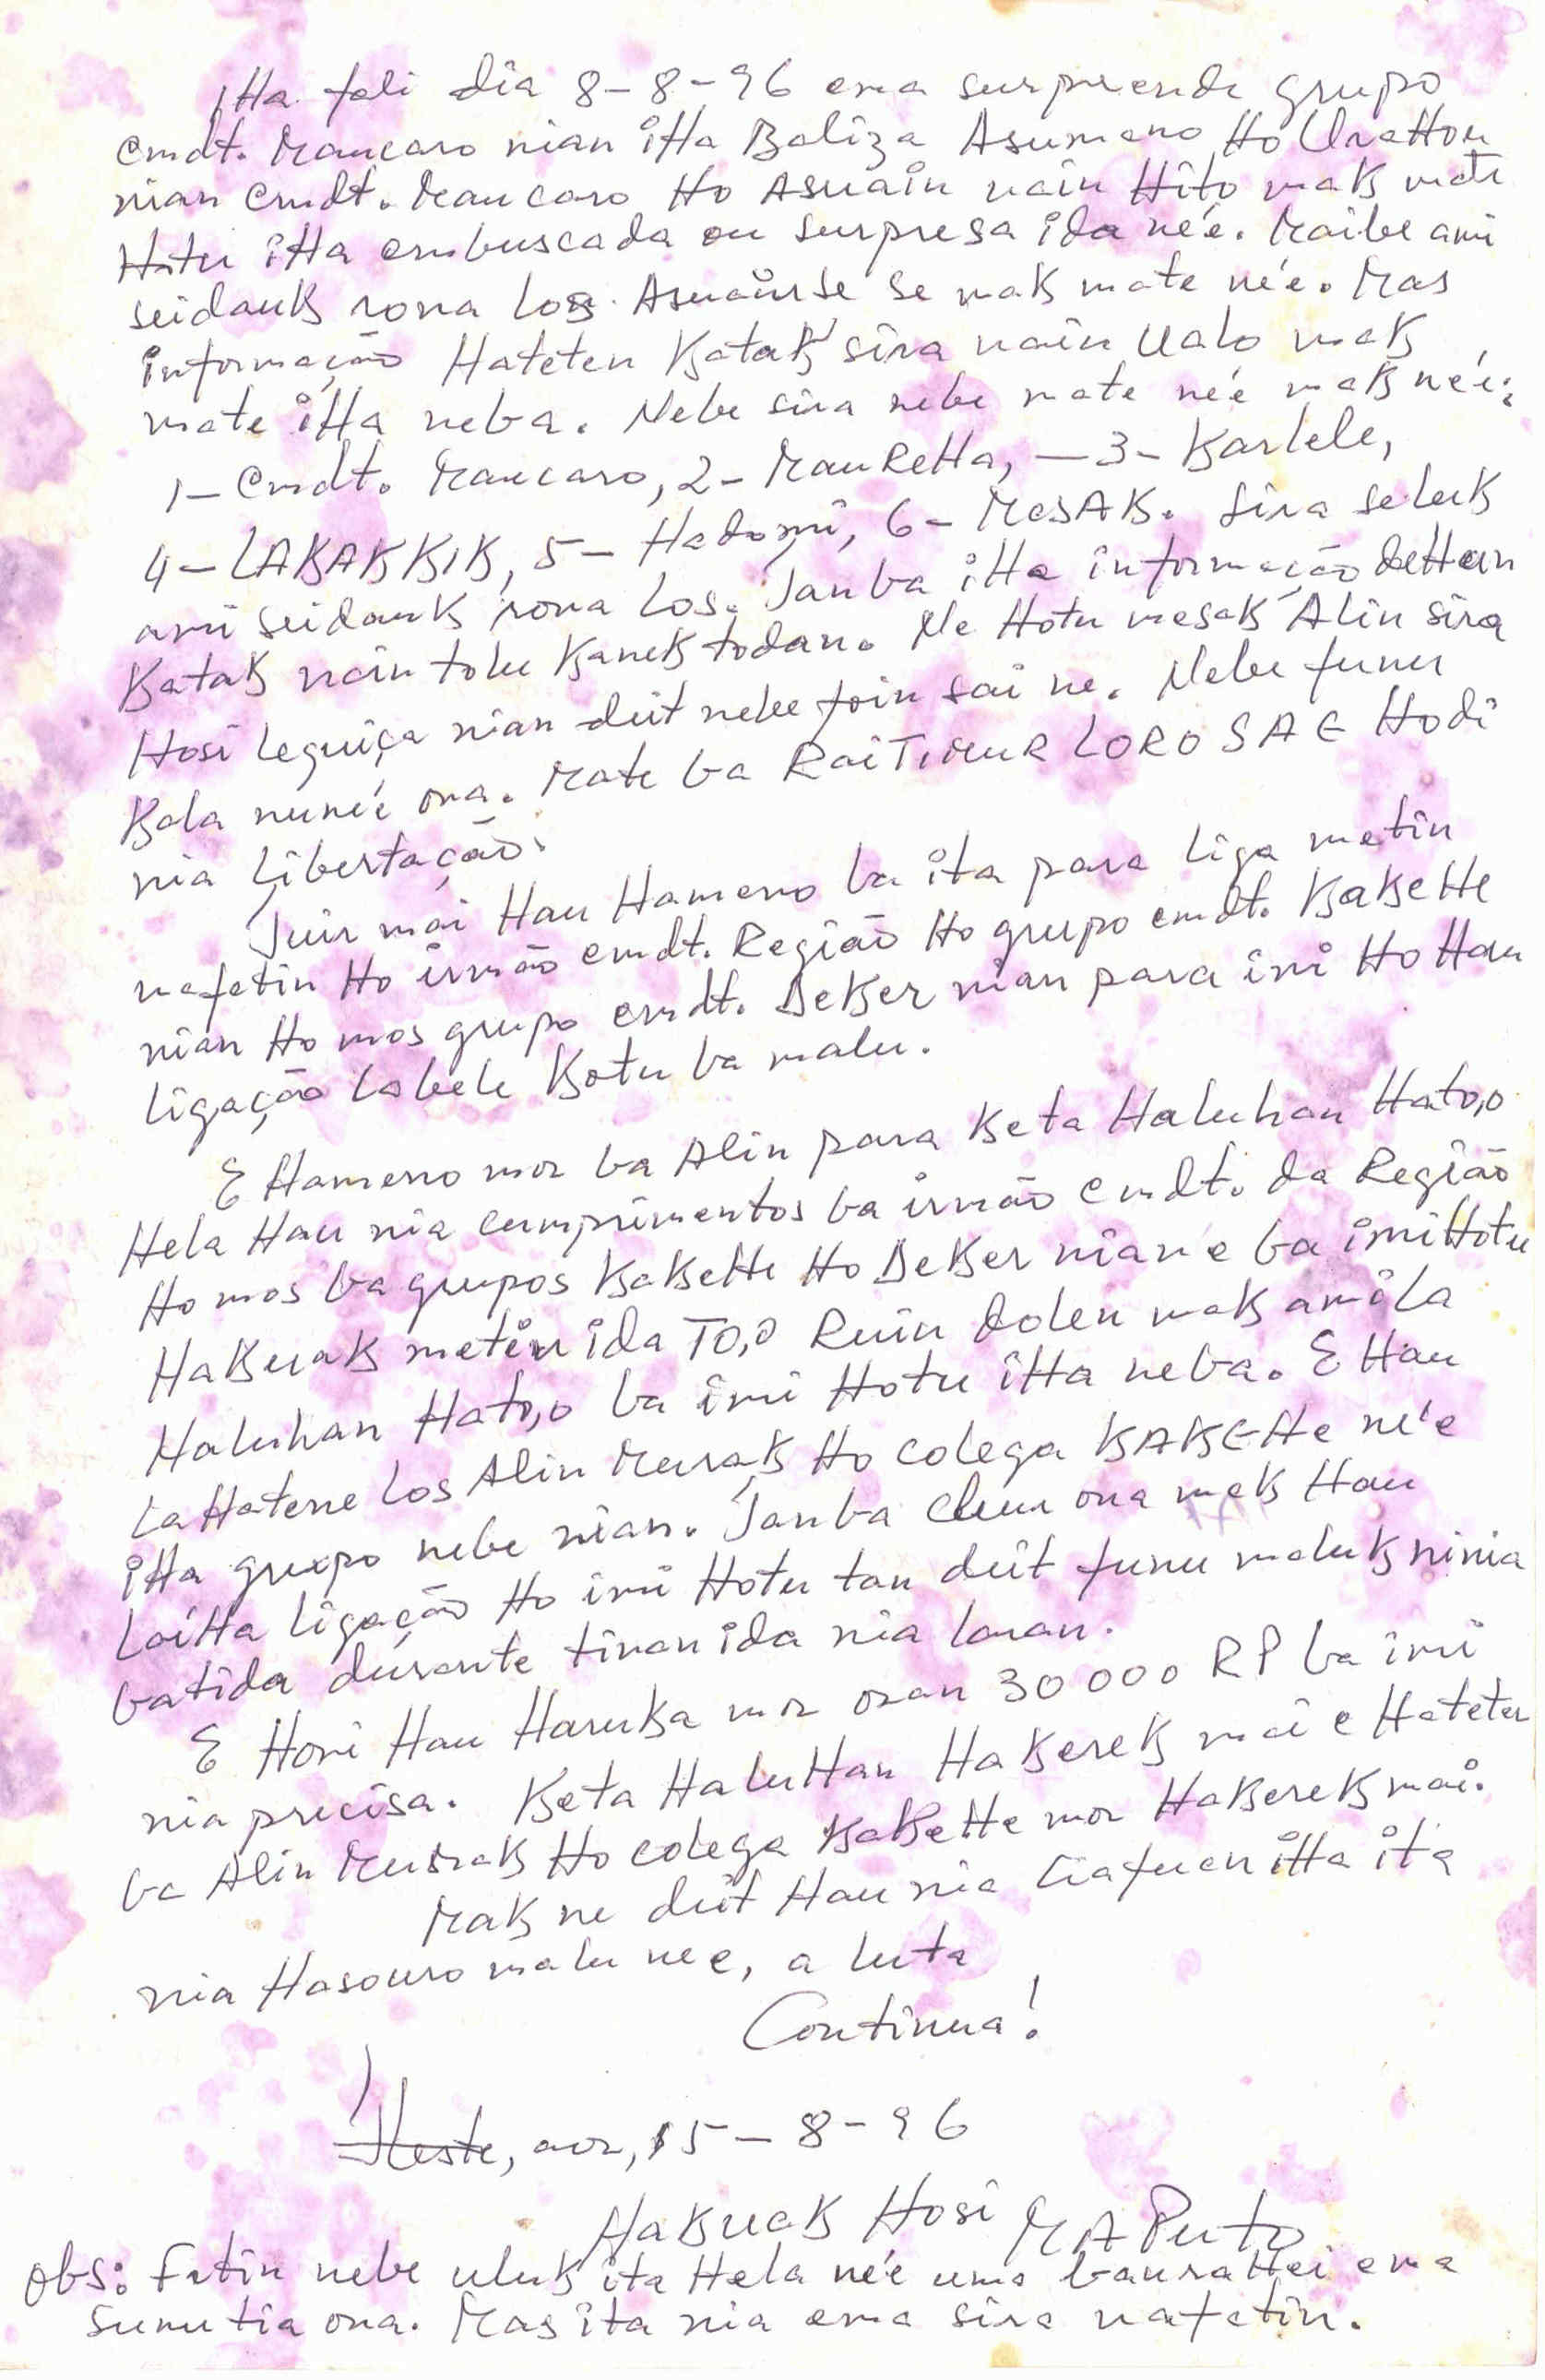 iHa fali dia 8-8-96 ema surpreende grupo
cmdt. Maucaro nian iHa Baliza Asumano Ho UraHou
nian Cmdt. Maucaro Ho Asuain nain Hito mak mate
Hotu iHa embuscada ou surpresa ida né'e. Maibe ami
seidauk rona los Asuain se se mak mate né'e. Mas
informação Hateten Katak sira nain Ualo mak
mate iHa neba. Nebe sira nebe mate né'e mak né'e:
1- Cmdt. Maucaro, 2- MauReHa, - 3- Karlele,
4- LAKAKKIK, 5- Hadomi, 6- MesAK. Sira seluk
ami seidauk rona los. Tanba iHa informação deHan
Katak nain tolu Kanek todan. Ne Hotu mesak Alin sira
Hosi Leguiça nian deit nebe foin sai ne. Nebe funu
Kala nune'é ona. Mate ba Rai TIMUR LORO SAE Hodi
nia Libertação.
Tuir mai Hau Hameno ba ita para liga metin
nafatin Ho irmão cmdt. Região Ho grupo cmdt. KaKeHe
nian Ho mos grupo cmdt. DeKer nian para imi Ho Hau
ligação labele Kotu ba malu.
E Hameno mos ba Alin para Keta Haluhan Hato,o
Hela Hau nia cumprimentos ba irmão cmdt. da Região
Ho mos ba grupos KaKeHe Ho DeKer nian e ba imi Hotu
HaKuak metin ida TO,O Ruin dolen mak ami la
Haluhan Hato,o ba imi Hotu iHa neba. E Hau
La Hatene Los Alin Murak Ho colega KAKEHe né'e
iHa grupo nebe nian. Tanba cleur ona mak Hau
LaiHa ligação Ho imi Hotu tan deit funu maluk ninia
batida durante tinan ida nia laran.
E Hori Hau Haruka mos osan 30000 RP ba imi
nia precisa. Keta HaluHan HaKerek mai e Hateten
ba Alin Murak Ho colega KaKeHe mos HaKerek mai.
Mak ne deit Hau nia liafuan iHa ita
nia Hasouro malu nee, a luta
Continua!
Heste, aos, 15-8-96
HaKuak Hosi MAPuto
obs: Fatin nebe uluk ita Hela né'e uma ema
sunu tia ona. Mas ita nia ema sira nafatin.